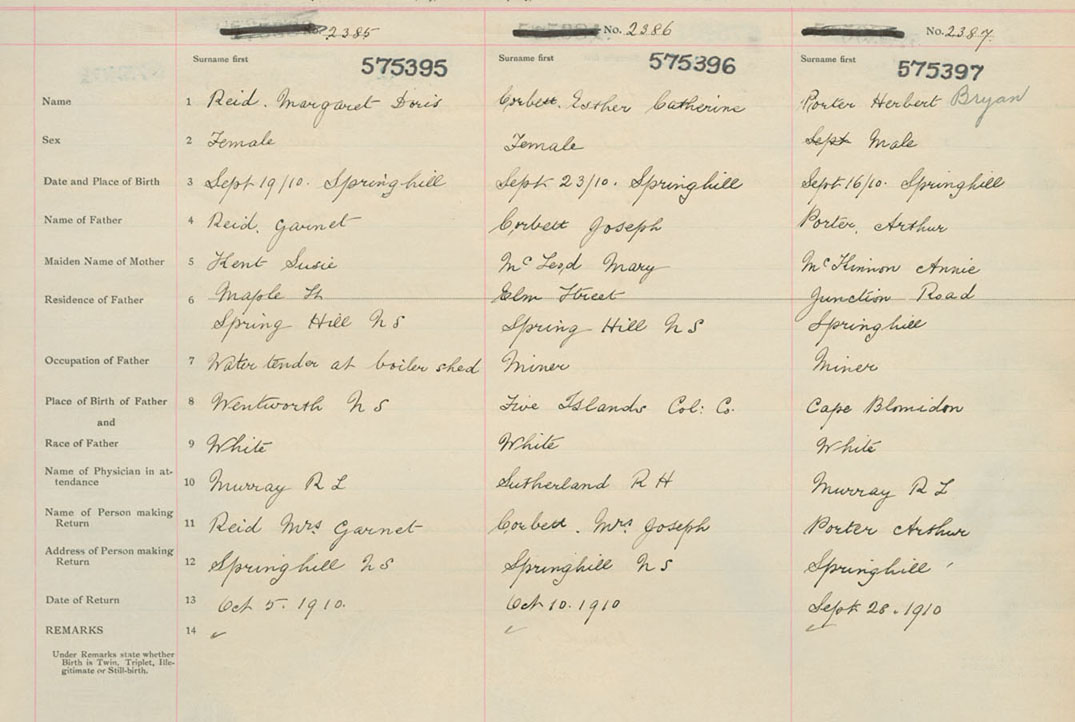 No. 2385 No. 2386 No. 2387.
Surname first 575395 Surname first 575396 Surname first 575397
Name 1 Reid. Margaret Doris Corbett. Esther Catherine Porter Herbert Bryan
Sex 2 Female Female Sept Male
Date and Place of Birth 3 Sept 19/10. Springhill Sept 23/10. Springhill Sept. 16/10. Springhill
Name of Father 4 Reid. Garnet Corbett Joseph Porter. Arthur
Maiden Name of Mother 5 Kent Susie McLeod Mary McKinnon Annie
Residence of Father 6 Maple St Elm Street Junction Road
Spring Hill N S Spring Hill N S Springhill
Occupation of Father 7 Water tender at boiler shed Miner Miner
Place of Birth of Father 8 Wentworth N S Five Islands Col: Co. Cape Blomidon
and
Race of Father 9 White White White
Name of Physician in at-
tendance 10 Murray R L Sutherland R H Murray R L
Name of Person making
Return 11 Reid Mrs Garnet Corbett. Mrs Joseph Porter Arthur
Address of Person making
Return 12 Springhill N S Springhill N S Springhill
Date of Return 13 Oct 5. 1910. Oct 10. 1910 Sept 28. 1910
REMARKS 14
Under Remarks state whether
Birth is Twin, Triplet, Ille-
gitimate or Still-birth.